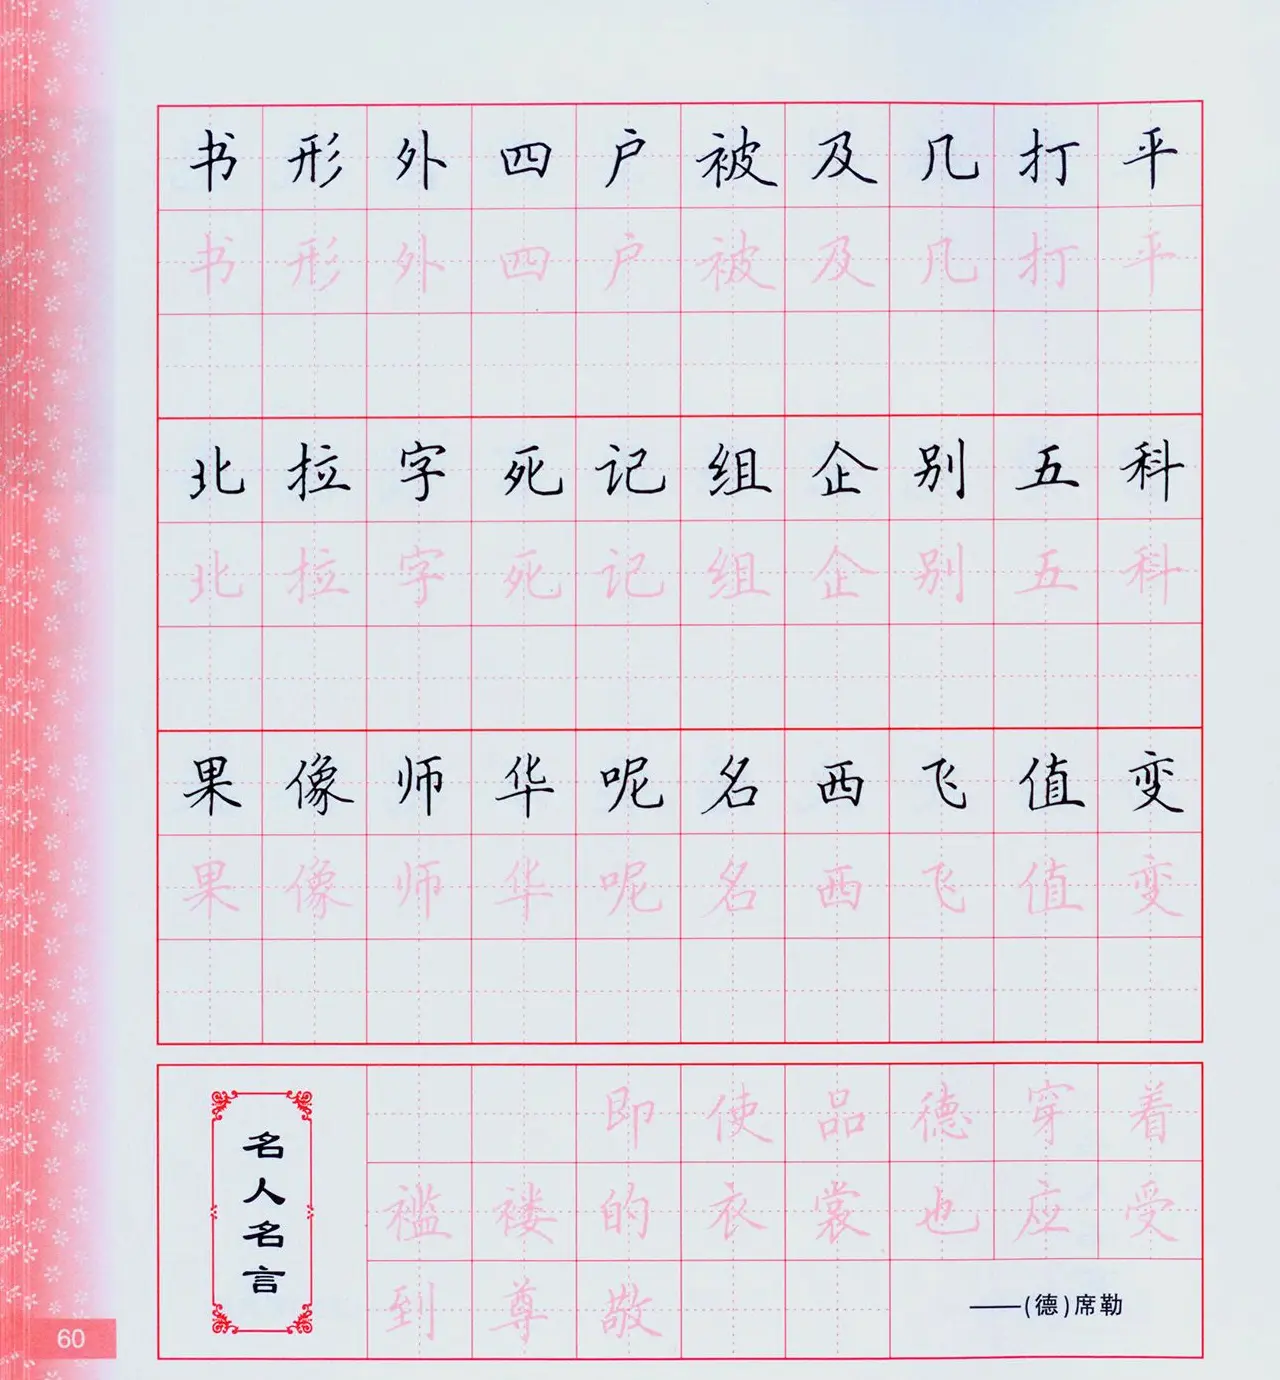 书形外四户被及几打平
书形外四户被及几打平
北拉字死记组企别五科
北拉字死记组企别五科
果像师华呢名西飞值变
果像师华呢名西飞值变
名人名言
即使品德穿着
褴褛的衣裳也应受
到尊敬
——(德)席勒
60